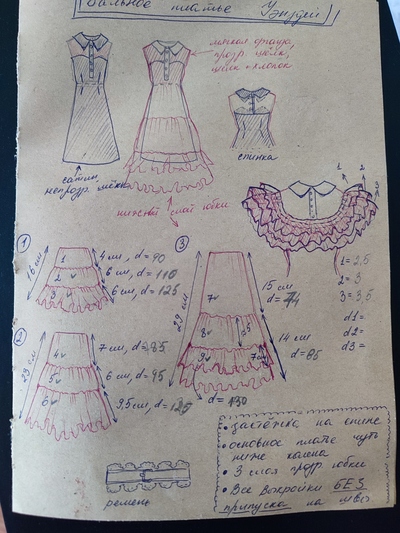 Бальное платье Уэнздей
мягкая органза,
прозр. шёлк,
шёлк + хлопок
спинка
сатин
непрозр. шёлк
нижний слой юбки
1 2 3
1 = 2,5
2 = 3
3 = 3,5
d1 =
d2 =
d3 =
①
26 см
1
2
3
4 см, d = 90
6 см, d = 110
6 см, d = 125
②
23 см
4
5
6
7 см, d = 85
6 см, d = 95
9,5 см, d = 125
③
29 см
7
8
9
15 см
d = 74
14 см
d = 85
d = 130
ремень
• застёжка на спине
• основное платье чуть
ниже колена
• 3 слоя прозр. юбки
• Все выкройки БЕЗ
припуска на швы